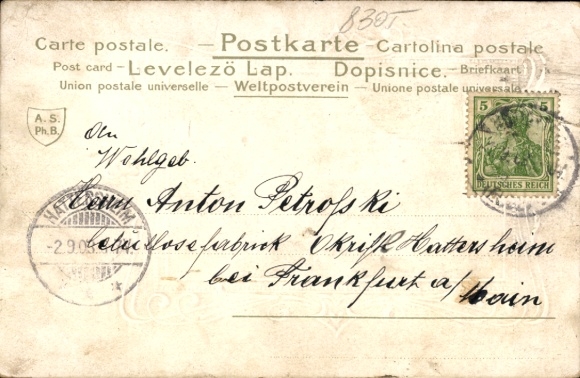 830T
Carte postale. — Postkarte — Cartolina postale
Post card — Levelező Lap. Dopisnice. — Briefkaart
Union postale universelle — Weltpostverein — Unione postale universale
A. S.
Ph. B.
5 5
DEUTSCHES REICH
An
Wohlgeb.
Herrn Anton Petrofski
Okriftl Hattersheim
bei Frankfurt a/
Main
HATTERSHEIM
-2.9.05.